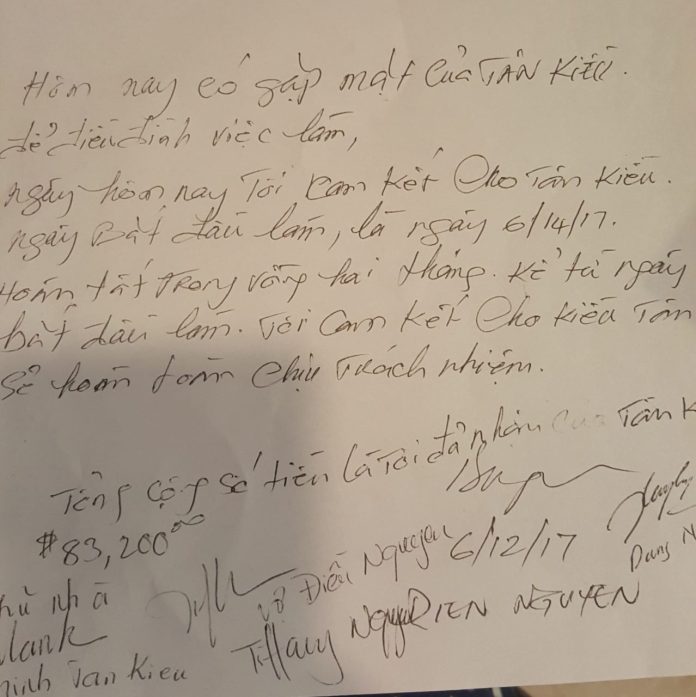 Hôm nay có gặp mặt của TÂN KIỀU.
để điều đình việc làm,
ngày hôm nay Tôi cam kết cho Tân Kiều.
ngày Bắt đầu làm, là ngày 6/14/17.
Hoàn tất trong vòng hai tháng. Kể từ ngày
bắt đầu làm. Tôi cam kết cho Kiều Tân
sẻ hoàn toàn chịu trách nhiệm.
Tổng cộng số tiền là Tôi đả nhận của Tân K
$83,200.00
6/12/17
Điểu Nguyen
Dung N
Tiffany NGUYEN
hủ nhà
inh Tan Kieu